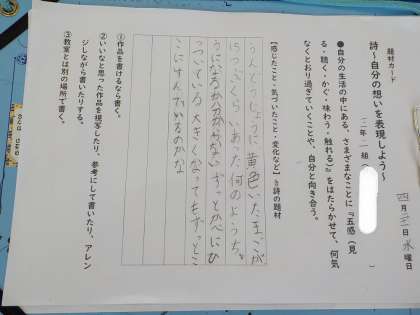 題材カード
四月二三日水曜日
詩～自分の想いを表現しよう～
二年二組
●自分の生活の中にある、さまざまなことに『五感（見
る・聴く・かぐ・味わう・触れる）』をはたらかせて、何気
なくとおり過ぎていくことや、自分と向き合う。
【感じたこと・気づいたこと・変化など】⇩詩の題材
うんどうじょうに黄色いたまごが
15つぶくらいあった何のようち。
うになるか分からないずっとかべにひ
っついている大きくなってもずっとこ
こにすんでいるのかな
①作品を書けるなら書く。
②いいなと思った作品を視写したり、参考にして書いたり、アレン
ジしながら書いたりする。
③教室とは別の場所で書く。